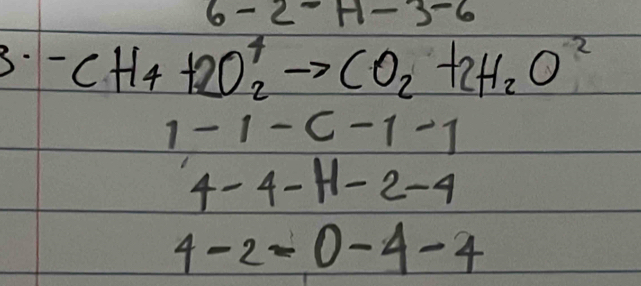 6-2-H-3-6
3. -CH4 +2O₂⁴ → CO₂ +2H₂O²
1-1-C-1-1
4-4-H-2-4
4-2-O-4-4